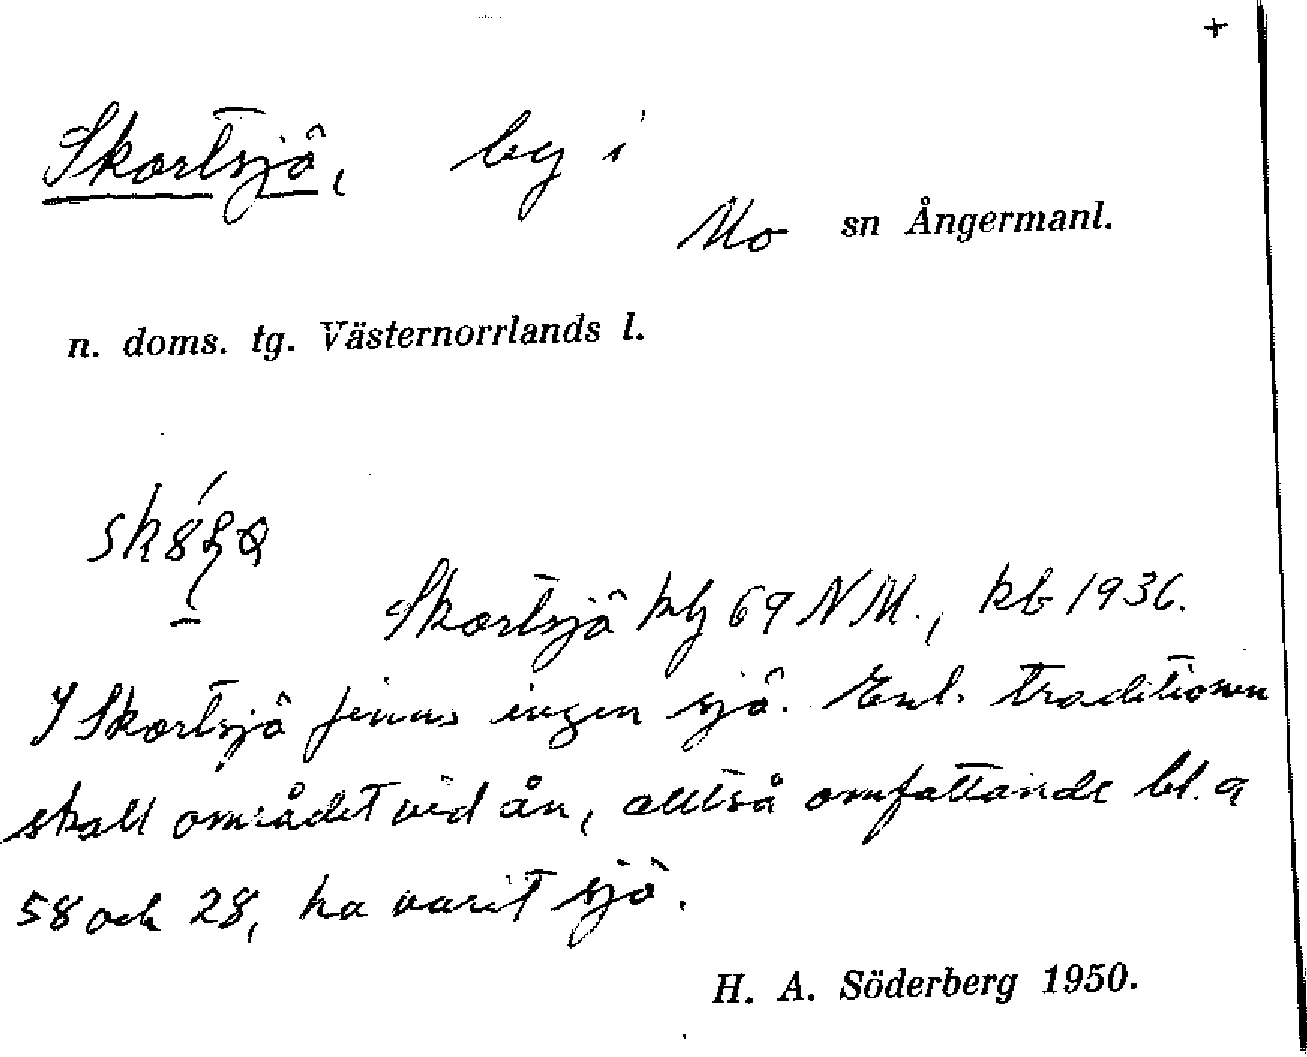 +
Skortsjö, by i
Mo sn Ångermanl.
n. doms. tg. Västernorrlands l.
Skortsjö kbg 69 NM., kb 1936.
I Skortsjö finns ingen sjö. Enl. traditionen
skall området vid ån, alltså omfattande bl. a
58 och 28, ha varit sjö.
H. A. Söderberg 1950.